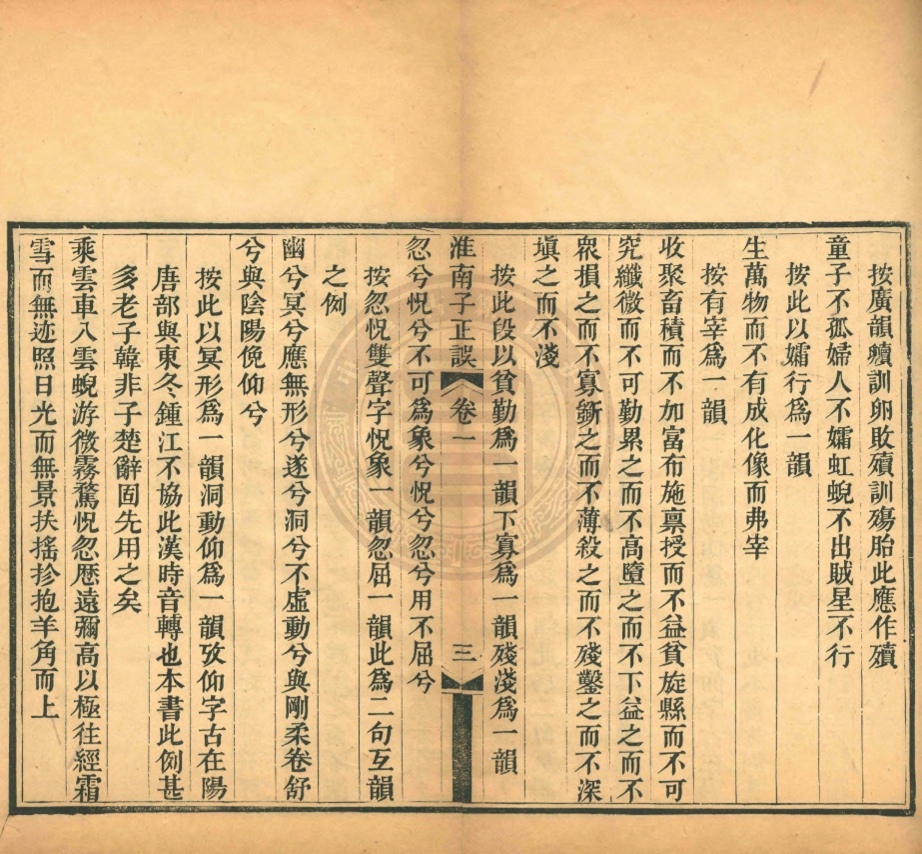 按廣韻㱩訓卵敗殰訓殤胎此應作殰
童子不孤婦人不孀虹蜺不出賊星不行
按此以孀行爲一韻
生萬物而不有成化像而弗宰
按有宰爲一韻
收聚畜積而不加富布施禀授而不益貧旋縣而不可
究纖微而不可勤累之而不高墮之而不下益之而不
衆損之而不寡斵之而不薄殺之而不殘鑿之而不深
塡之而不淺
按此段以貧勤爲一韻下寡爲一韻殘淺爲一韻
淮南子正誤 卷一 三
忽兮怳兮不可爲象兮怳兮忽兮用不屈兮
按忽怳雙聲字怳象一韻忽屈一韻此爲二句互韻
之例
幽兮冥兮應無形兮遂兮洞兮不虛動兮與剛柔卷舒
兮與陰陽俛仰兮
按此以冥形爲一韻洞動仰爲一韻攷仰字古在陽
唐部與東冬鍾江不協此漢時音轉也本書此例甚
多老子韓非子楚辭固先用之矣
乘雲車入雲蜺游微霧騖怳忽歷遠彌高以極往經霜
雪而無迹照日光而無景扶搖抮抱羊角而上